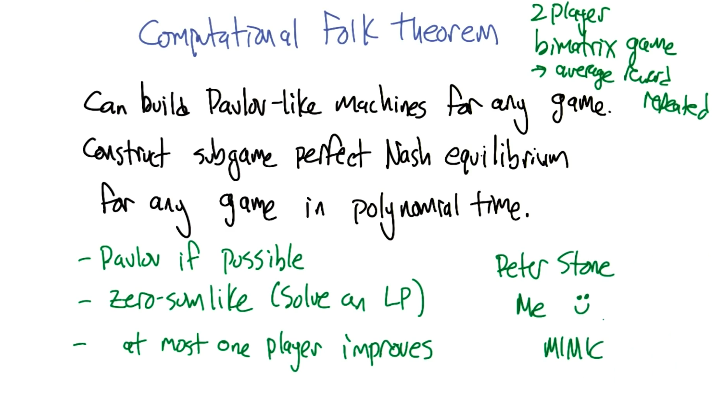 Computational Folk Theorem
2 player
bimatrix game
→ average reward
repeated
Can build Pavlov-like machines for any game.
Construct subgame perfect Nash equilibrium
for any game in polynomial time.
- Pavlov if possible
- zero-sum like (solve an LP)
- at most one player improves
Peter Stone
Me ü
MIMIC